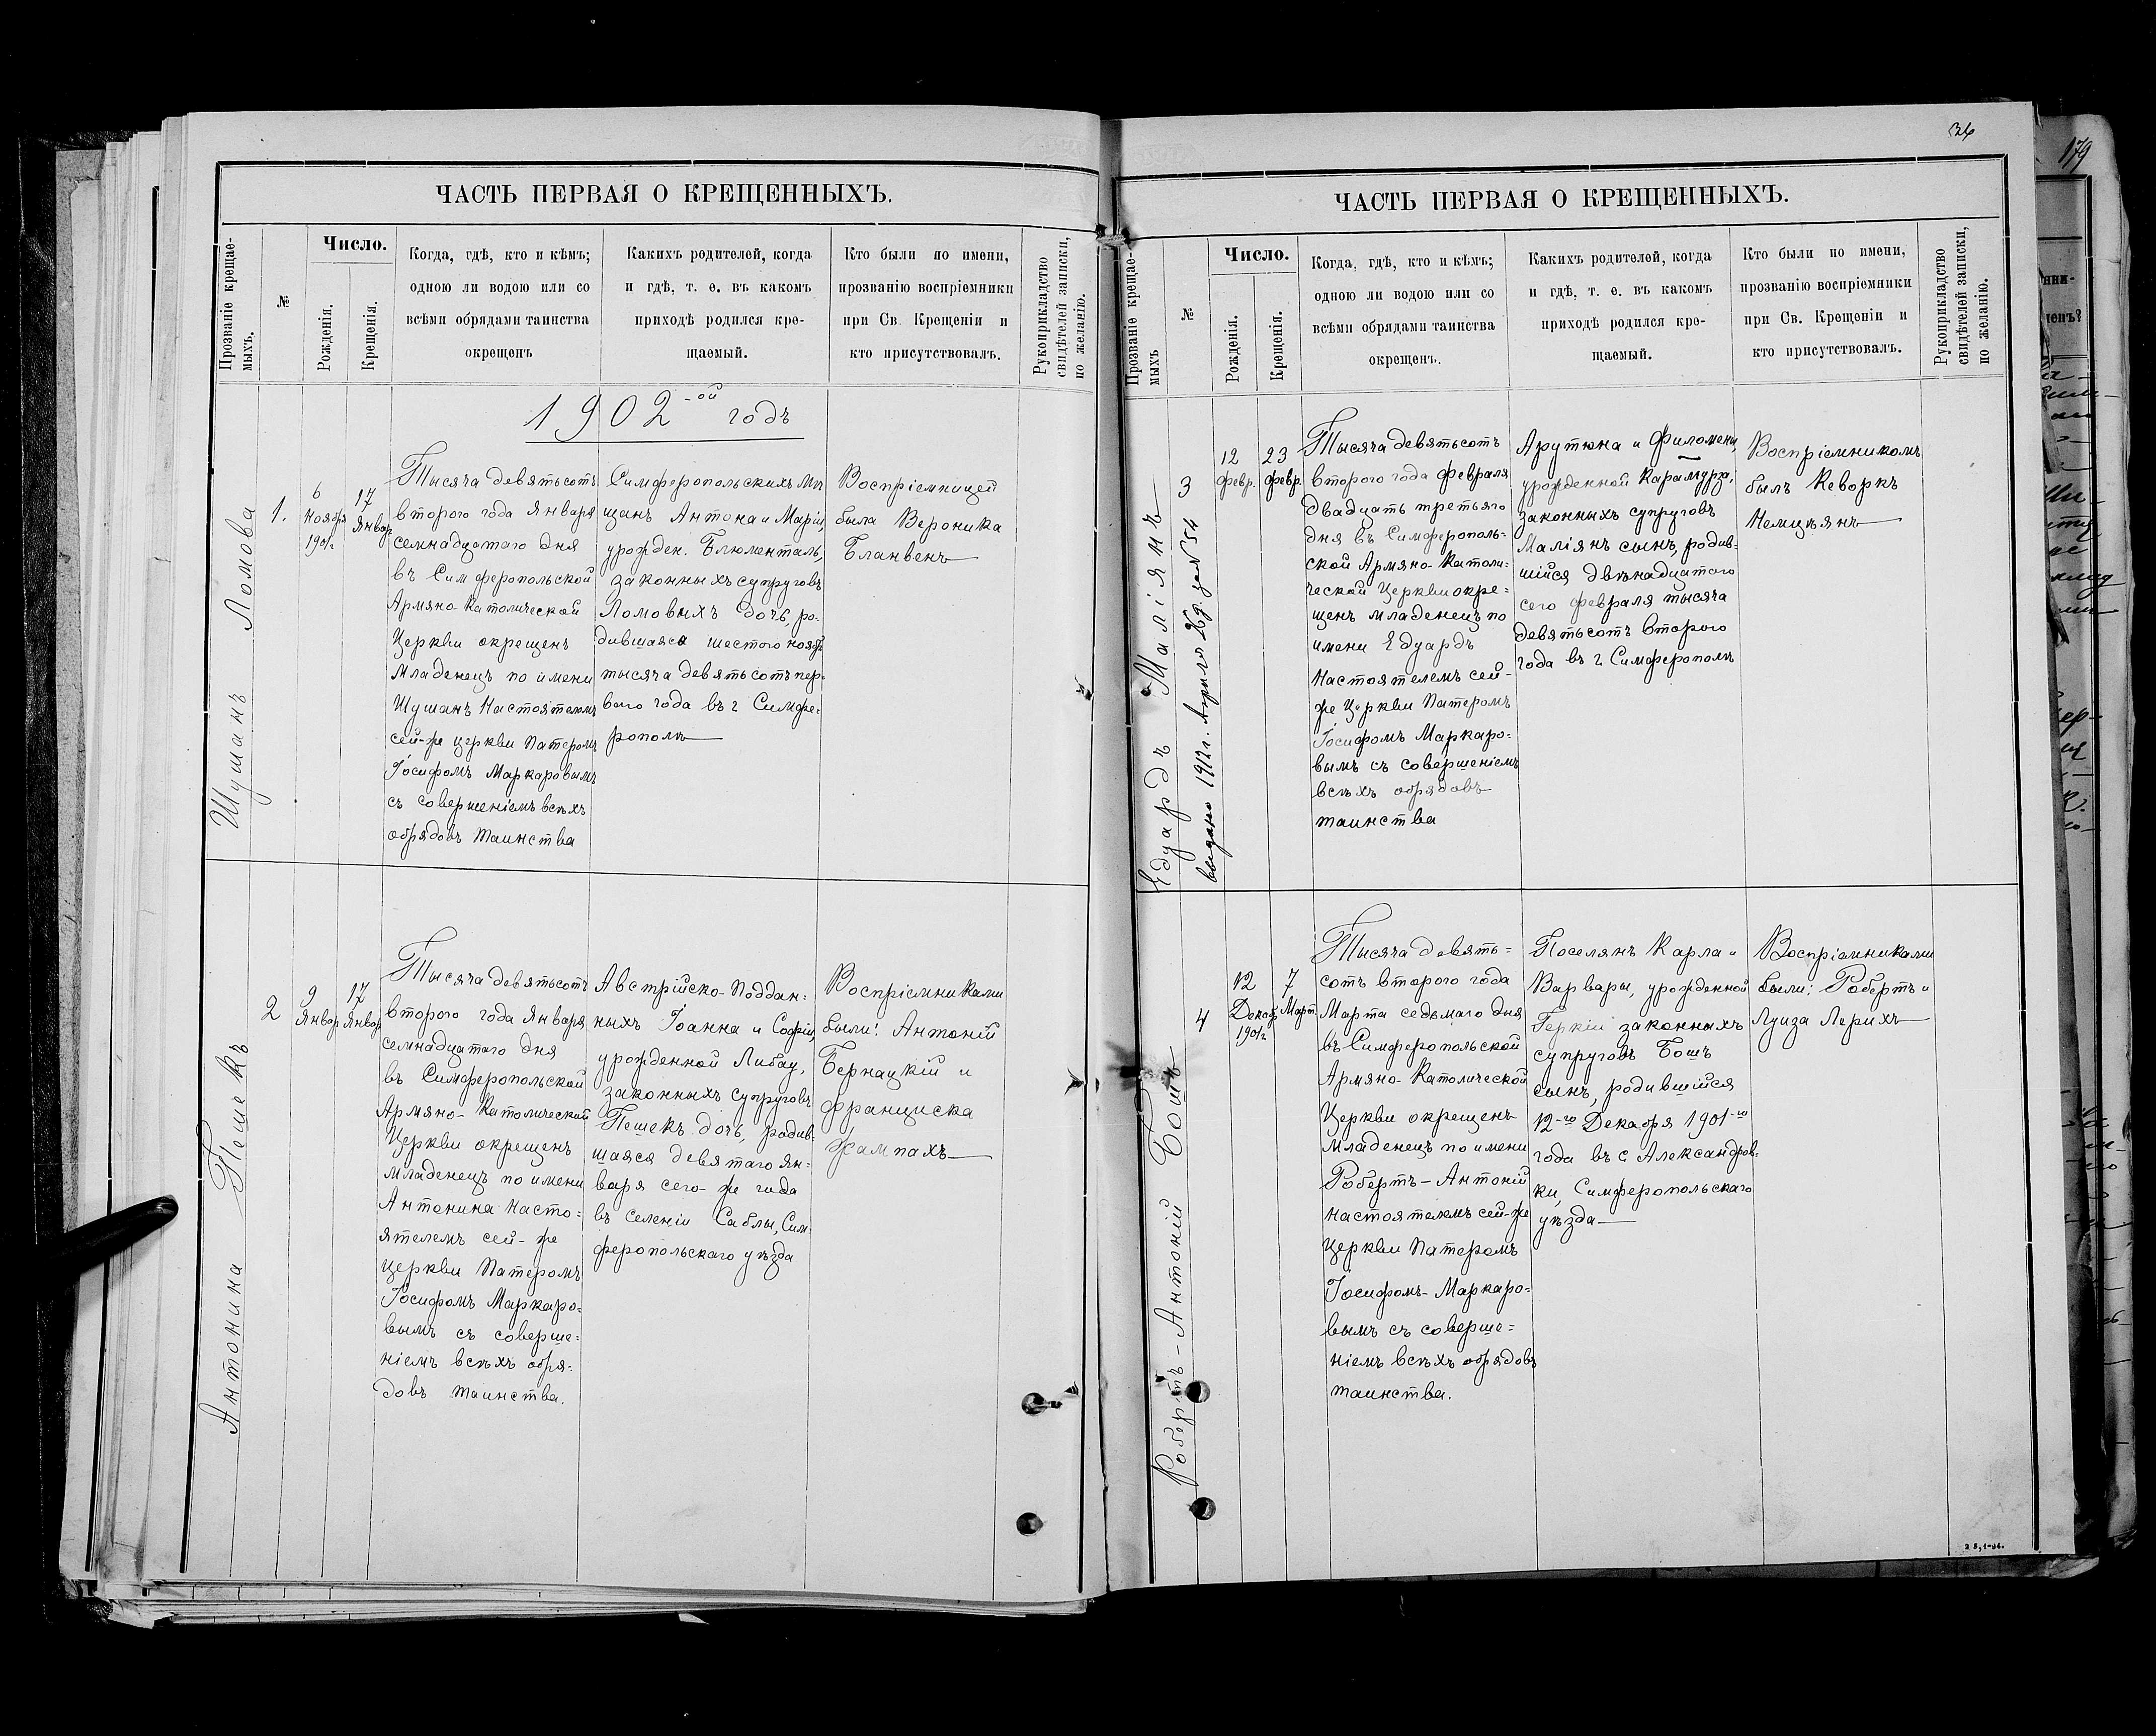 ЧАСТЬ ПЕРВАЯ О КРЕЩЕННЫХЪ.
Прозваніе крещае-
мыхъ.
№
Число.
Рожденія.
Крещенія.
Когда, гдѣ, кто и кѣмъ;
одною ли водою или со
всѣми обрядами таинства
окрещенъ
Какихъ родителей, когда
и гдѣ, т. е. въ какомъ
приходѣ родился кре-
щаемый.
Кто были по имени,
прозванію воспріемники
при Св. Крещеніи и
кто присутствовалъ.
Рукоприкладство
свидѣтелей записки,
по желанію.
1902-ой годъ
Шушанъ Ломова
1.
6
Ноября
1901г
17
Январ
Тысяча девятьсотъ
второго года Января
семнадцатаго дня
въ Симферопольской
Армяно-Католической
Церкви окрещенъ
Младенецъ по имени
Шушанъ Настоятелемъ
сей-же церкви Патеромъ
Іосифомъ Маркаровымъ
съ совершеніемъ всѣхъ
обрядовъ таинства
Симферопольскихъ мѣ
щанъ Антона и Маріи,
урожден. Блюменталь,
законныхъ супруговъ
Ломовыхъ дочь, ро-
дившаяся шестого нояб.
тысяча девятьсотъ пер-
ваго года въ г Симфе-
рополѣ
Воспріемницей
была Вероника
Бланвенъ
Антонина Пешекъ
2
9
Январ
17
Январ
Тысяча девятьсотъ
второго года Января
семнадцатаго дня
въ Симферопольской
Армяно-Католической
Церкви окрещенъ
младенецъ по имени
Антонина Насто-
ятелемъ сей-же
церкви Патеромъ
Іосифомъ Маркаро-
вымъ съ соверше-
ніемъ всѣхъ обря-
довъ таинства.
Австрійско-Поддан-
ныхъ Іоанна и Софіи,
урожденной Либау,
законныхъ супруговъ
Пешекъ дочь, родив-
шаяся девятаго ян-
варя сего-же года
въ селеніи Саблы, Сим-
феропольскаго уѣзда
Воспріемниками
были: Антоній
Бернацкій и
Франциска
Жампахъ
36
ЧАСТЬ ПЕРВАЯ О КРЕЩЕННЫХЪ.
Прозваніе крещае-
мыхъ
№
Число.
Рожденія.
Крещенія.
Когда, гдѣ, кто и кѣмъ;
одною ли водою или со
всѣми обрядами таинства
окрещенъ.
Какихъ родителей, когда
и гдѣ, т. е. въ какомъ
приходѣ родился кре-
щаемый.
Кто были по имени,
прозванію воспріемники
при Св. Крещеніи и
кто присутствовалъ.
Рукоприкладство
свидѣтелей записки,
по желанію.
Едуардъ Маліянъ
выдано 1912г. Апрѣля 26д. за № 54
3
12
Февр.
23
Февр.
Тысяча девятьсотъ
второго года Февраля
двадцать третьяго
дня въ Симферополь-
ской Армяно-Католи-
ческой Церкви окре-
щенъ младенецъ по
имени Едуардъ
Настоятелемъ сей-
же Церкви Патеромъ
Іосифомъ Маркаро-
вымъ съ совершеніемъ
всѣхъ обрядовъ
таинства
Арутюна и Филомены,
урожденной Карамурза,
законныхъ супруговъ
Маліянъ сынъ, родив-
шійся двѣнадцатого
сего февраля тысяча
девятьсотъ второго
года въ г. Симферополѣ
Воспріемникомъ
былъ Кеворкъ
Немцѣянъ
Робертъ-Антоній Бошъ
4
12
Декаб
1901г.
7
Март
Тысяча девять-
сотъ второго года
Марта седьмаго дня
въ Симферопольской
Армяно-Католической
Церкви окрещенъ
младенецъ по имени
Робертъ-Антоній
Настоятелемъ сей-же
церкви Патеромъ
Іосифомъ-Маркаро-
вымъ съ соверше-
ніемъ всѣхъ обрядовъ
таинства.
Поселянъ Карла и
Варвары, урожденной
Геркіи законныхъ
супруговъ Бошъ
сынъ, родившійся
12-го Декабря 1901-го
года въ с Александров-
ки, Симферопольскаго
уѣзда
Воспріемниками
были: Робертъ и
Луиза Лерихъ
179